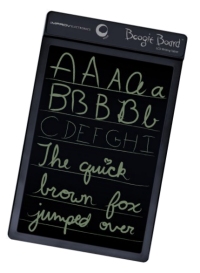 Boogie Board
A A A a a
B B B B b
C D E F G H I
The quick
brown fox
jumped over